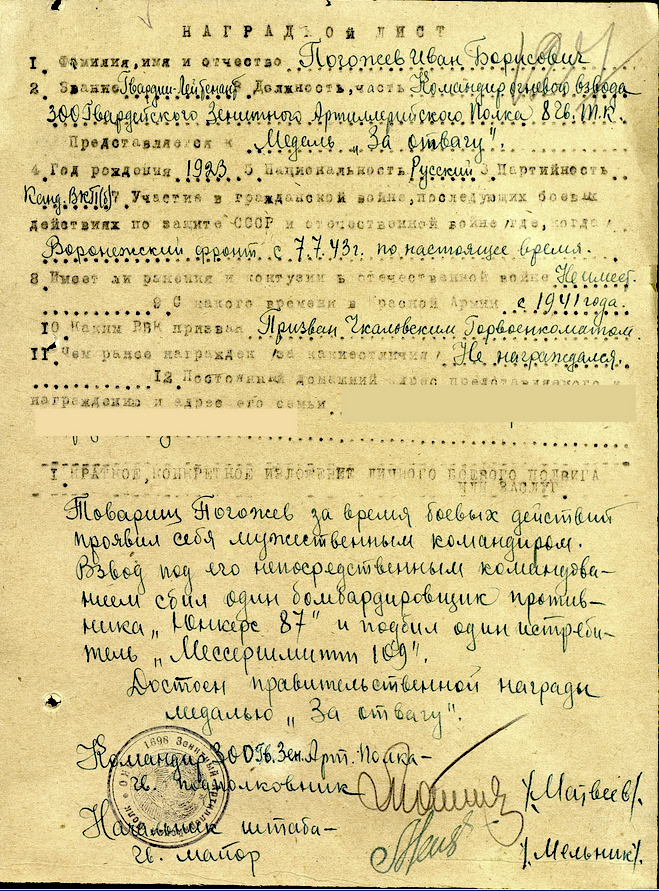 НАГРАДНОЙ ЛИСТ
1. Фамилия, имя и отчество Погожев Иван Борисович
2. Звание Гвардии-Лейтенант 3 Должность, часть Командир огневого взвода
300 Гвардейского Зенитного Артиллерийского Полка 8 Гв. Т.К.
Представляется к Медаль „За отвагу".
4. Год рождения 1923. 5 Национальность Русский Партийность
Канд. ВКП(б) 7 Участие в гражданской войне, последующих боевых
действиях по защите СССР и отечественной войне /где, когда/
Воронежский фронт с 7.7.43г. по настоящее время.
8. Имеет ли ранения и контузии в отечественной войне Не имеет.
9 С какого времени в Красной Армии с 1941 года.
10 Каким РВК призван Призван Чкаловским Горвоенкоматом.
11. Чем ранее награжден /за какие отличия/ Не награждался.
12 Постоянный домашний адрес представляемого к
награждению и адрес его семьи
I. КРАТКОЕ, КОНКРЕТНОЕ ИЗЛОЖЕНИЕ ЛИЧНОГО БОЕВОГО ПОДВИГА
ИЛИ ЗАСЛУГ
Товарищ Погожев за время боевых действий
проявил себя мужественным командиром.
Взвод под его непосредственным командова-
нием сбил один бомбардировщик против-
ника „Юнкерс 87" и подбил один истреби-
тель „Мессершмитт 109".
Достоен правительственной награды
медалью „За отвагу".
Командир 300 Гв. Зен. Арт. Полка-
гв. подполковник /Матвеев/.
Начальник штаба-
гв. майор /Мельник/.
1696 Зенитный